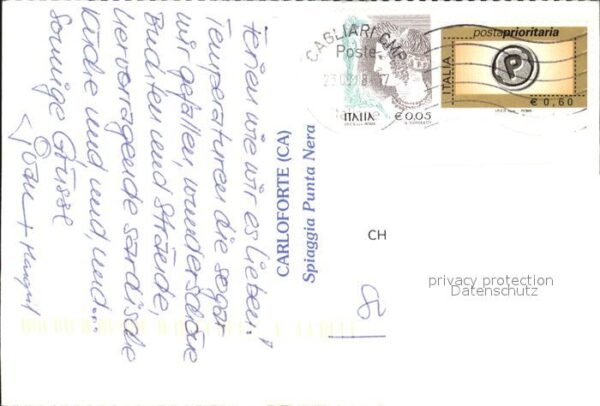 Ferien wie wir es lieben!
Temperaturen die sogar
wir gefallen, wunderschöne
Buchten und Strände,
hervorragende sardische
Küche und und und...
Sonnige Grüsse
CARLOFORTE (CA)
Spiaggia Punta Nera
CAGLIARI CMP
Poste
ITALIA
€ 0,05
postaprioritaria
ITALIA
P
€ 0,60
CH
privacy protection
Datenschutz